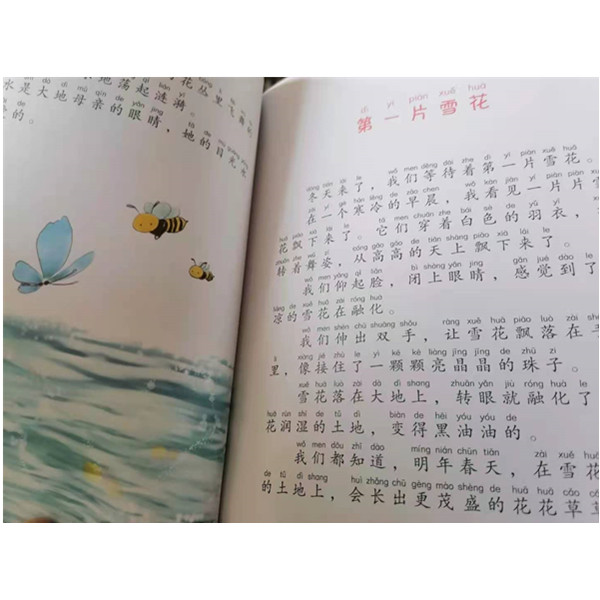 花丛里飞舞
地荡起涟漪。
水是大地母亲的眼睛，她的目光
的。
dì yī piàn xuě huā
第一片雪花
dōng tiān lái le wǒ men děng dài zhe dì yī piàn xuě huā
冬天来了，我们等待着第一片雪花。
zài yí gè hán lěng de zǎo chen wǒ kàn jiàn yí piàn piàn xuě
在一个寒冷的早晨，我看见一片片雪
huā piāo xià lái le tā men chuān zhe bái sè de yǔ yī
花飘下来了。它们穿着白色的羽衣，
zhuàn zhe wǔ zī cóng gāo gāo de tiān shàng piāo xià lái le
转着舞姿，从高高的天上飘下来了。
wǒ men yǎng qǐ liǎn bì shàng yǎn jīng gǎn jué dào le
我们仰起脸，闭上眼睛，感觉到了
liáng de xuě huā zài róng huà
凉的雪花在融化。
wǒ men shēn chū shuāng shǒu ràng xuě huā piāo luò zài
我们伸出双手，让雪花飘落在手
lǐ xiàng jiē zhù le yì kē kē liàng jīng jīng de zhū zi
里，像接住了一颗颗亮晶晶的珠子。
xuě huā luò zài dà dì shang zhuǎn yǎn jiù róng huà le
雪花落在大地上，转眼就融化了
huā rùn shī de tǔ dì biàn de hēi yóu yóu de
花润湿的土地，变得黑油油的。
wǒ men dōu zhī dào míng nián chūn tiān zài xuě huā
我们都知道，明年春天，在雪花
de tǔ dì shang huì zhǎng chū gèng mào shèng de huā huā cǎo cǎo
的土地上，会长出更茂盛的花花草草